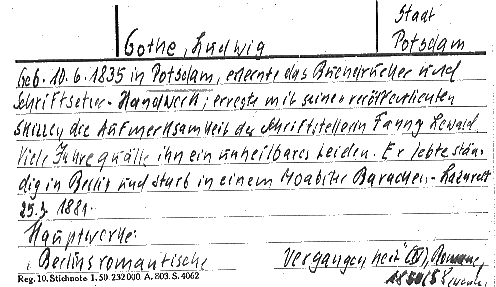 Stadt
Gothe, Ludwig
Potsdam
Geb. 10.6.1835 in Potsdam, erlernte das Buchdrucker und
Schriftsetzer-Handwerk; erregte mit seinen veröffentlichten
Skizzen die Aufmerksamkeit der Schriftstellerin Fanny Lewald.
Viele Jahre quälte ihn ein unheilbares Leiden. Er lebte stän-
dig in Berlin und starb in einem Moabiter Baracken-Lazarett
1881.
Hauptwerke:
Berlins romantische Vergangenheit
Reg. 10. Stichnote 1. 50. 232000. A. 803. S. 4062